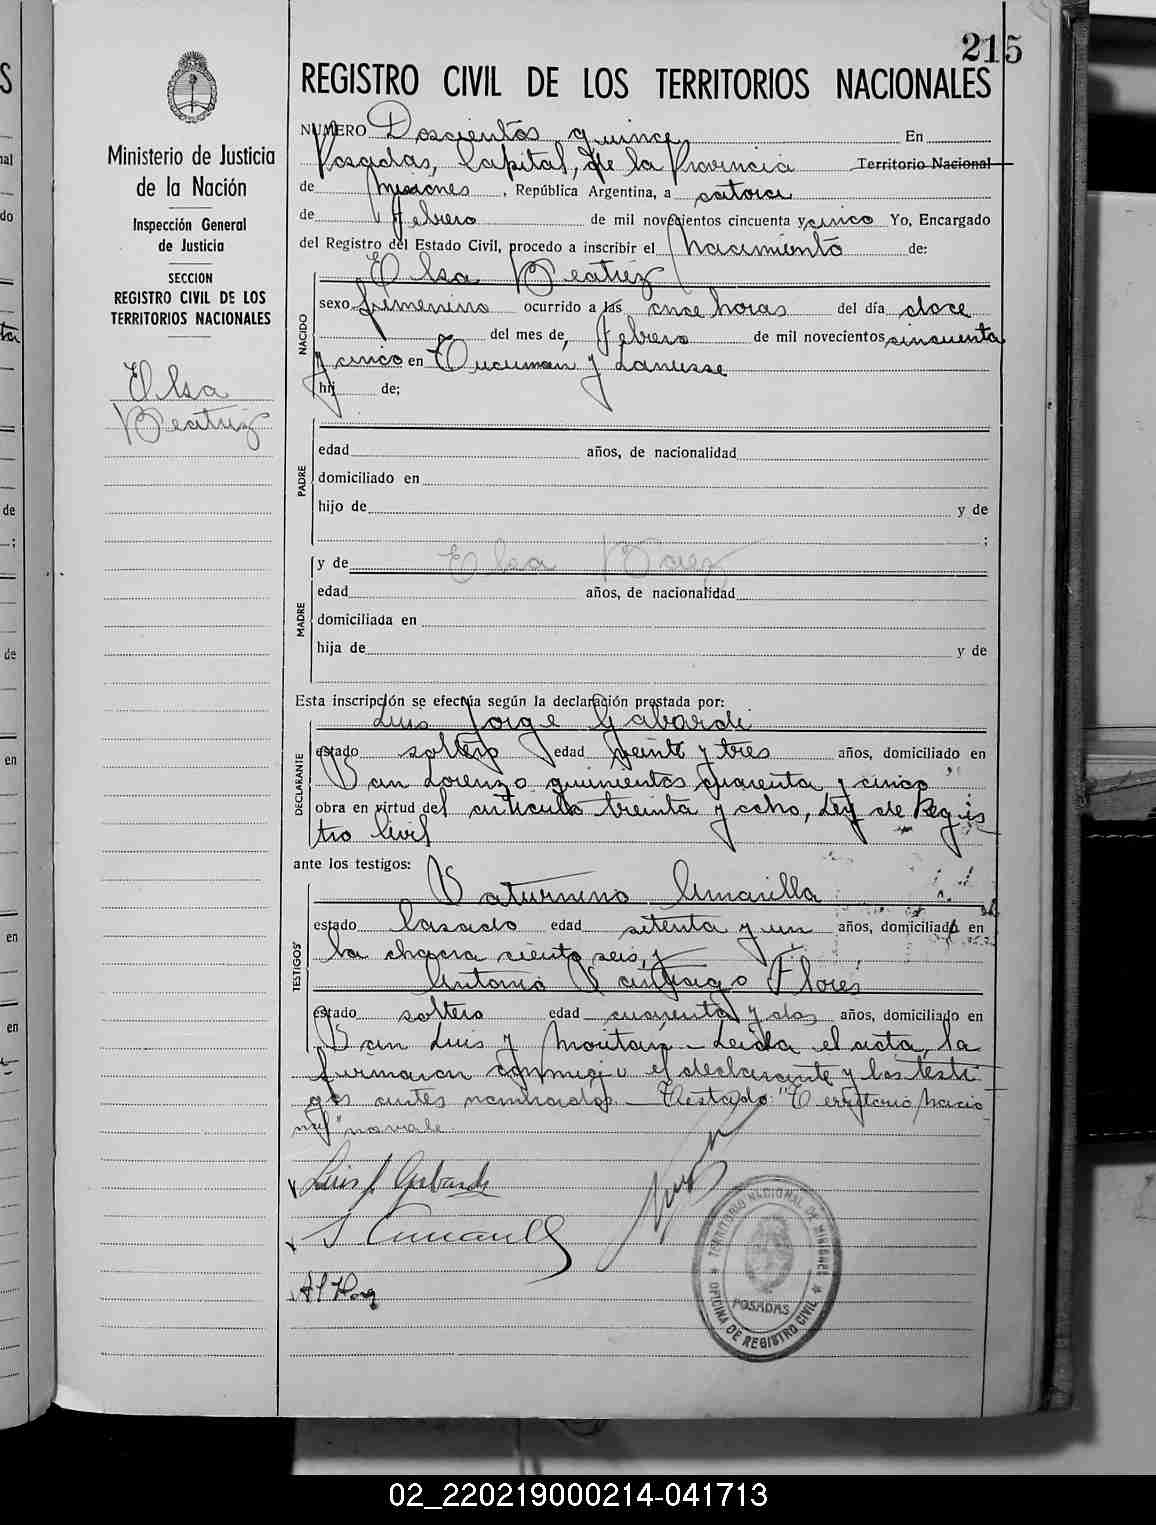 215
REGISTRO CIVIL DE LOS TERRITORIOS NACIONALES
Ministerio de Justicia
de la Nación
Inspección General
de Justicia
SECCION
REGISTRO CIVIL DE LOS
TERRITORIOS NACIONALES
Elsa
Beatriz
NUMERO Doscientos quince En
Posadas, Capital, de la Provincia Territorio Nacional
de Misiones, República Argentina, a catorce
de febrero de mil novecientos cincuenta y cinco Yo, Encargado
del Registro del Estado Civil, procedo a inscribir el nacimiento de:
NACIDO
Elsa Beatriz
sexo femenino ocurrido a las once horas del día doce
del mes de, febrero de mil novecientos cincuenta
y cinco en Tucuman y Lanusse
hij de;
PADRE
edad años, de nacionalidad
domiciliado en
hijo de y de
;
MADRE
y de Elsa Baez
edad años, de nacionalidad
domiciliada en
hija de y de
Esta inscripción se efectúa según la declaración prestada por:
DECLARANTE
Luis Jorge Gabardi
estado soltero edad veinte y tres años, domiciliado en
San Lorenzo quinientos cuarenta y cinco
obra en virtud del articulo treinta y ocho, Ley de Regis
tro Civil
ante los testigos:
TESTIGOS
Saturnino Amarilla
estado casado edad setenta y un años, domiciliado en
la chacra ciento seis, y
Antonio Santiago Flores
estado soltero edad cuarenta y dos años, domiciliado en
San Luis y Moritan - Leida el acta, la
firmaron conmigo el declarante y los testi
gos antes nombrados. - Testado: "Territorio Nacio
nal" no vale.
Luis J. Gabardi
S Amarilla
TERRITORIO NACIONAL DE MISIONES
POSADAS
OFICINA DE REGISTRO CIVIL
02_220219000214-041713